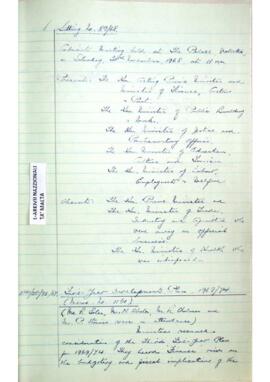 Sitting No. 89/68.
Cabinet Meeting held at The Palace Valletta
on Saturday, 30th November, 1968 at 11 am
Present: The Hon. Acting Prime Minister and
Minister of Finance, Customs
& Port.
The Hon. Minister of Public Building
& Works.
The Hon. Minister of Justice and
Parliamentary Affairs.
The Hon. Minister of Education,
Culture and Tourism.
The Hon. Minister of Labour,
Employment & Welfare.
Absent: The Hon. Prime Minister and
The Hon. Minister of Trade,
Industry and Agriculture who
were away on official
business.
The Hon. Minister of Health, who
was indisposed.
L-ARKIVJI NAZZJONALI
TA' MALTA
Five-Year Development Plan 1969/74
(Memo. No.
(Mr. R. Soler, Mr. Mr. R. Chalmers and
Mr. were in attendance)
Ministers resumed
consideration of the Third Five-Year Plan
for 1969/74. They heard Finance view on
the budgeting and fiscal implications of the